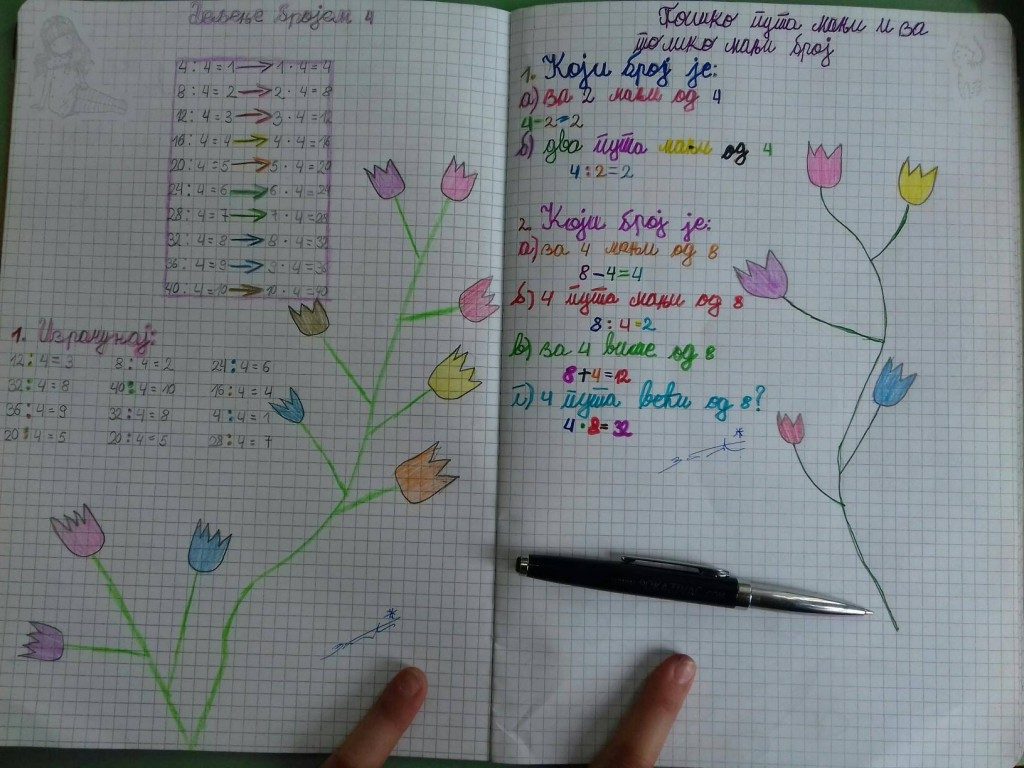 Дељење бројем 4
4 : 4 = 1 → 1 · 4 = 4
8 : 4 = 2 → 2 · 4 = 8
12 : 4 = 3 → 3 · 4 = 12
16 : 4 = 4 → 4 · 4 = 16
20 : 4 = 5 → 5 · 4 = 20
24 : 4 = 6 → 6 · 4 = 24
28 : 4 = 7 → 7 · 4 = 28
32 : 4 = 8 → 8 · 4 = 32
36 : 4 = 9 → 9 · 4 = 36
40 : 4 = 10 → 10 · 4 = 40
1. Израчунај:
12 : 4 = 3 8 : 4 = 2 24 : 4 = 6
32 : 4 = 8 40 : 4 = 10 16 : 4 = 4
36 : 4 = 9 32 : 4 = 8 4 : 4 = 1
20 : 4 = 5 20 : 4 = 5 28 : 4 = 7
Толико пута мањи и за
толико мањи број
1. Који број је:
а) за 2 мањи од 4
4 - 2 = 2
б) два пута мањи од 4
4 : 2 = 2
2. Који број је:
а) за 4 мањи од 8
8 - 4 = 4
б) 4 пута мањи од 8
8 : 4 = 2
в) за 4 више од 8
8 + 4 = 12
г) 4 пута већи од 8?
4 · 8 = 32